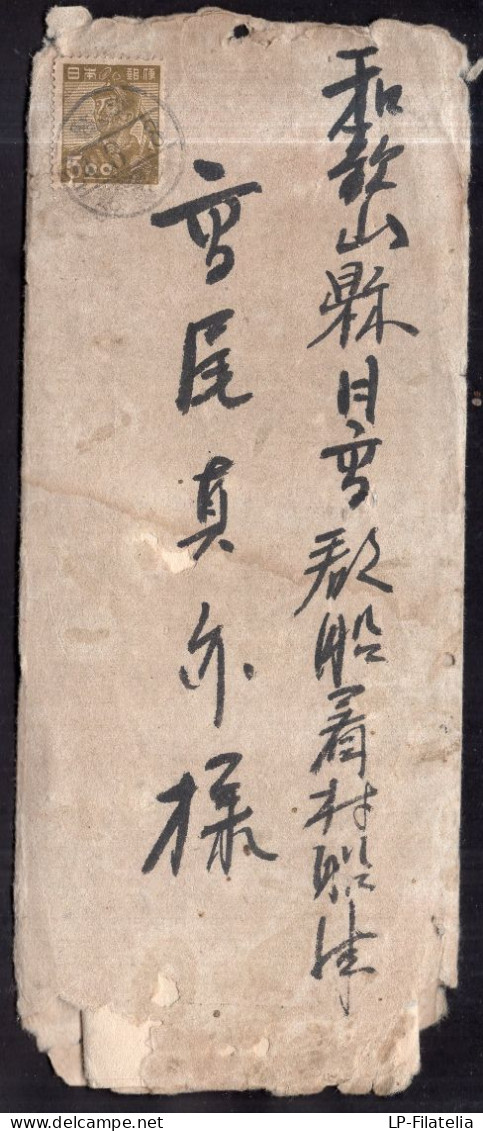 日本郵便
5.00
和歌山縣日高郡船着村船津
高尾真亦様
LP-Filatelia
www.delcampe.net